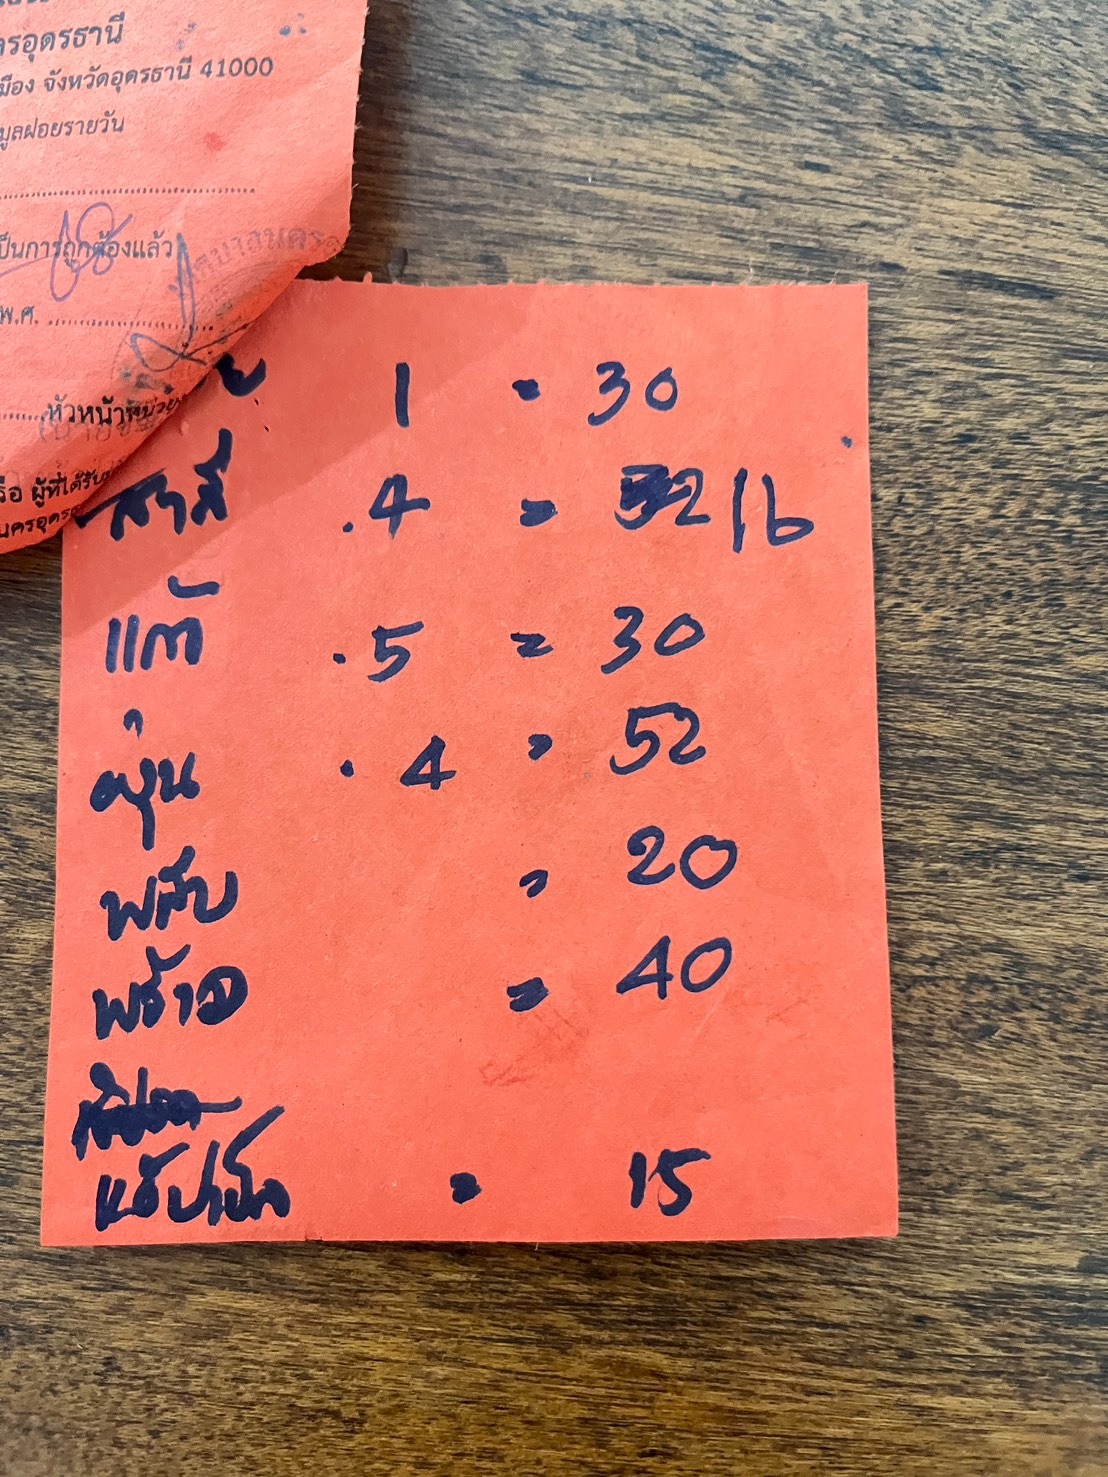 ครอุดรธานี
มือง จังหวัดอุดรธานี 41000
มูลฝอยรายวัน
ป็นการถูกต้องแล้ว
พ.ศ.
หัวหน้าหน่วย
รือ ผู้ที่ได้รับ
นครอุดร
1 = 30
สาลี่ .4 = 16
แก้ว .5 = 30
ฝรุ่น .4 = 52
พลับ = 20
พร้าว = 40
แอ๊ปเปิ้ล = 15